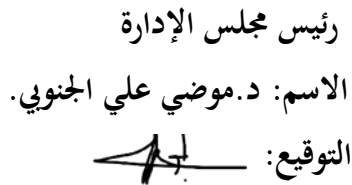 رئيس مجلس الإدارة
الاسم: د.موضي علي الجنوبي.
التوقيع: